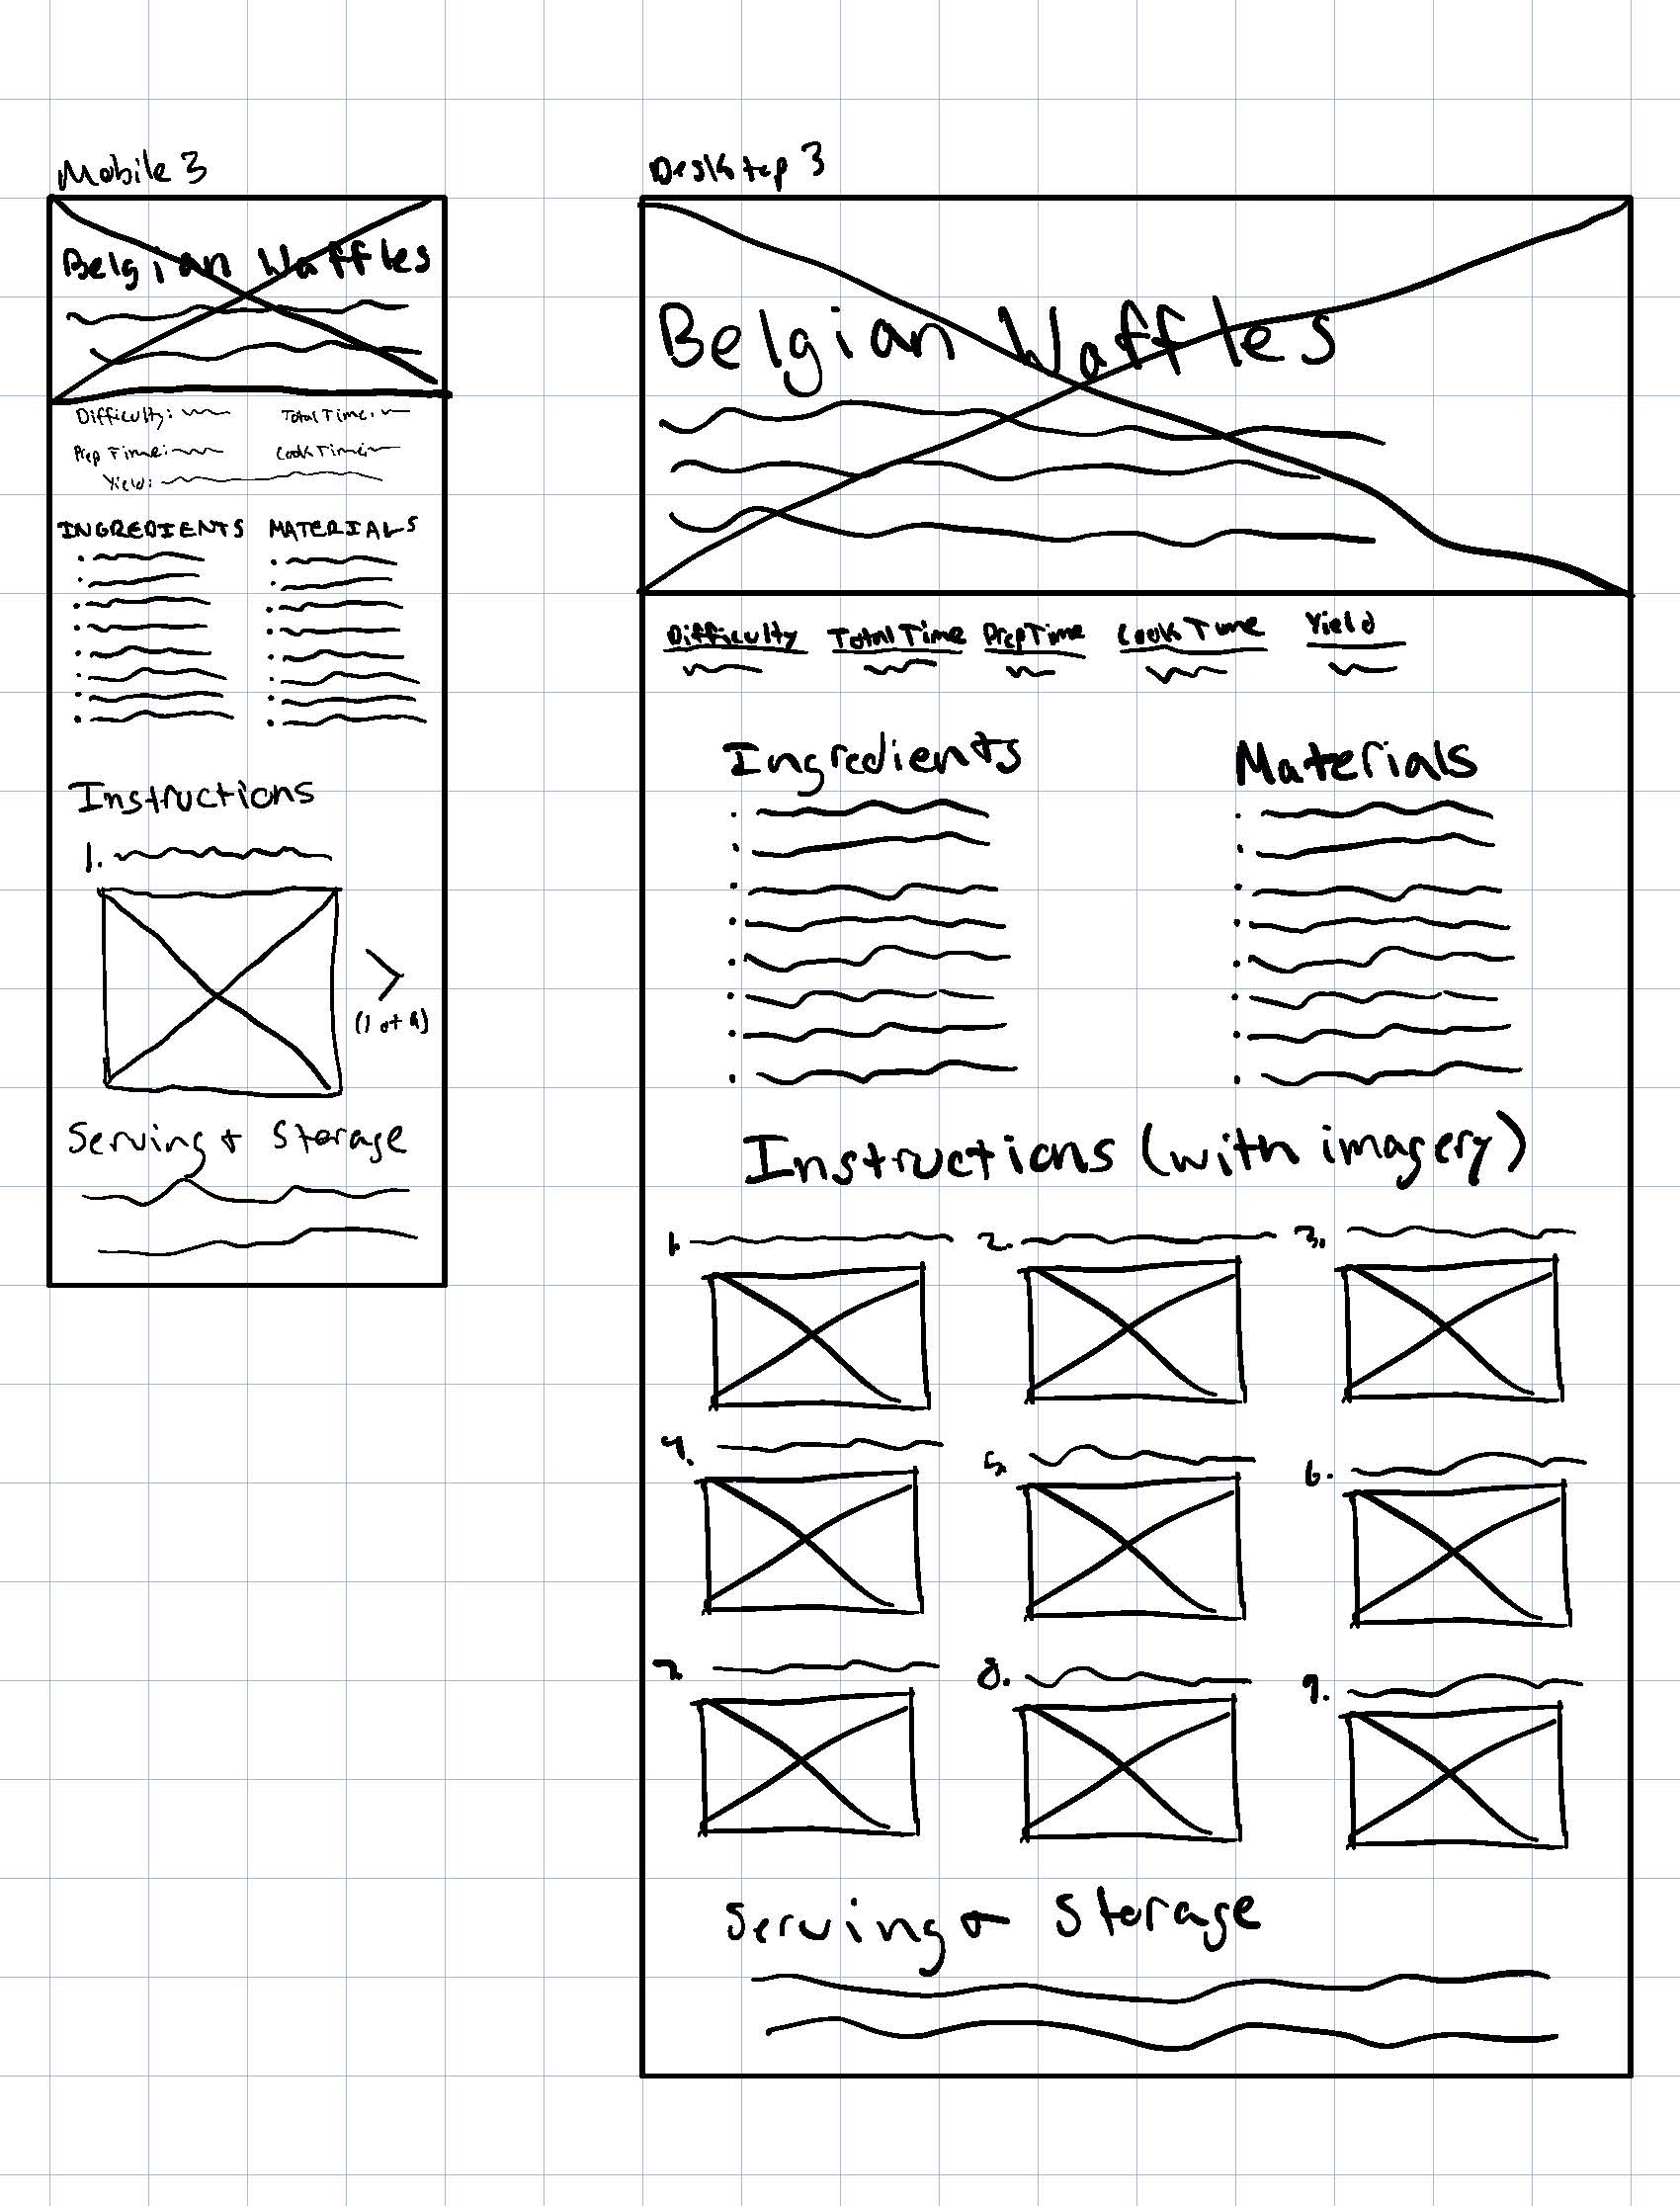 Mobile 3
Belgian Waffles
Difficulty: Total Time:
Prep Time: Cook Time:
Yield:
INGREDIENTS MATERIALS
Instructions
1.
>
(1 of 9)
Serving & Storage
Desktop 3
Belgian Waffles
Difficulty Total Time Prep Time Cook Time Yield
Ingredients Materials
Instructions (with imagery)
1. 2. 3.
4. 5. 6.
7. 8. 9.
Serving & Storage